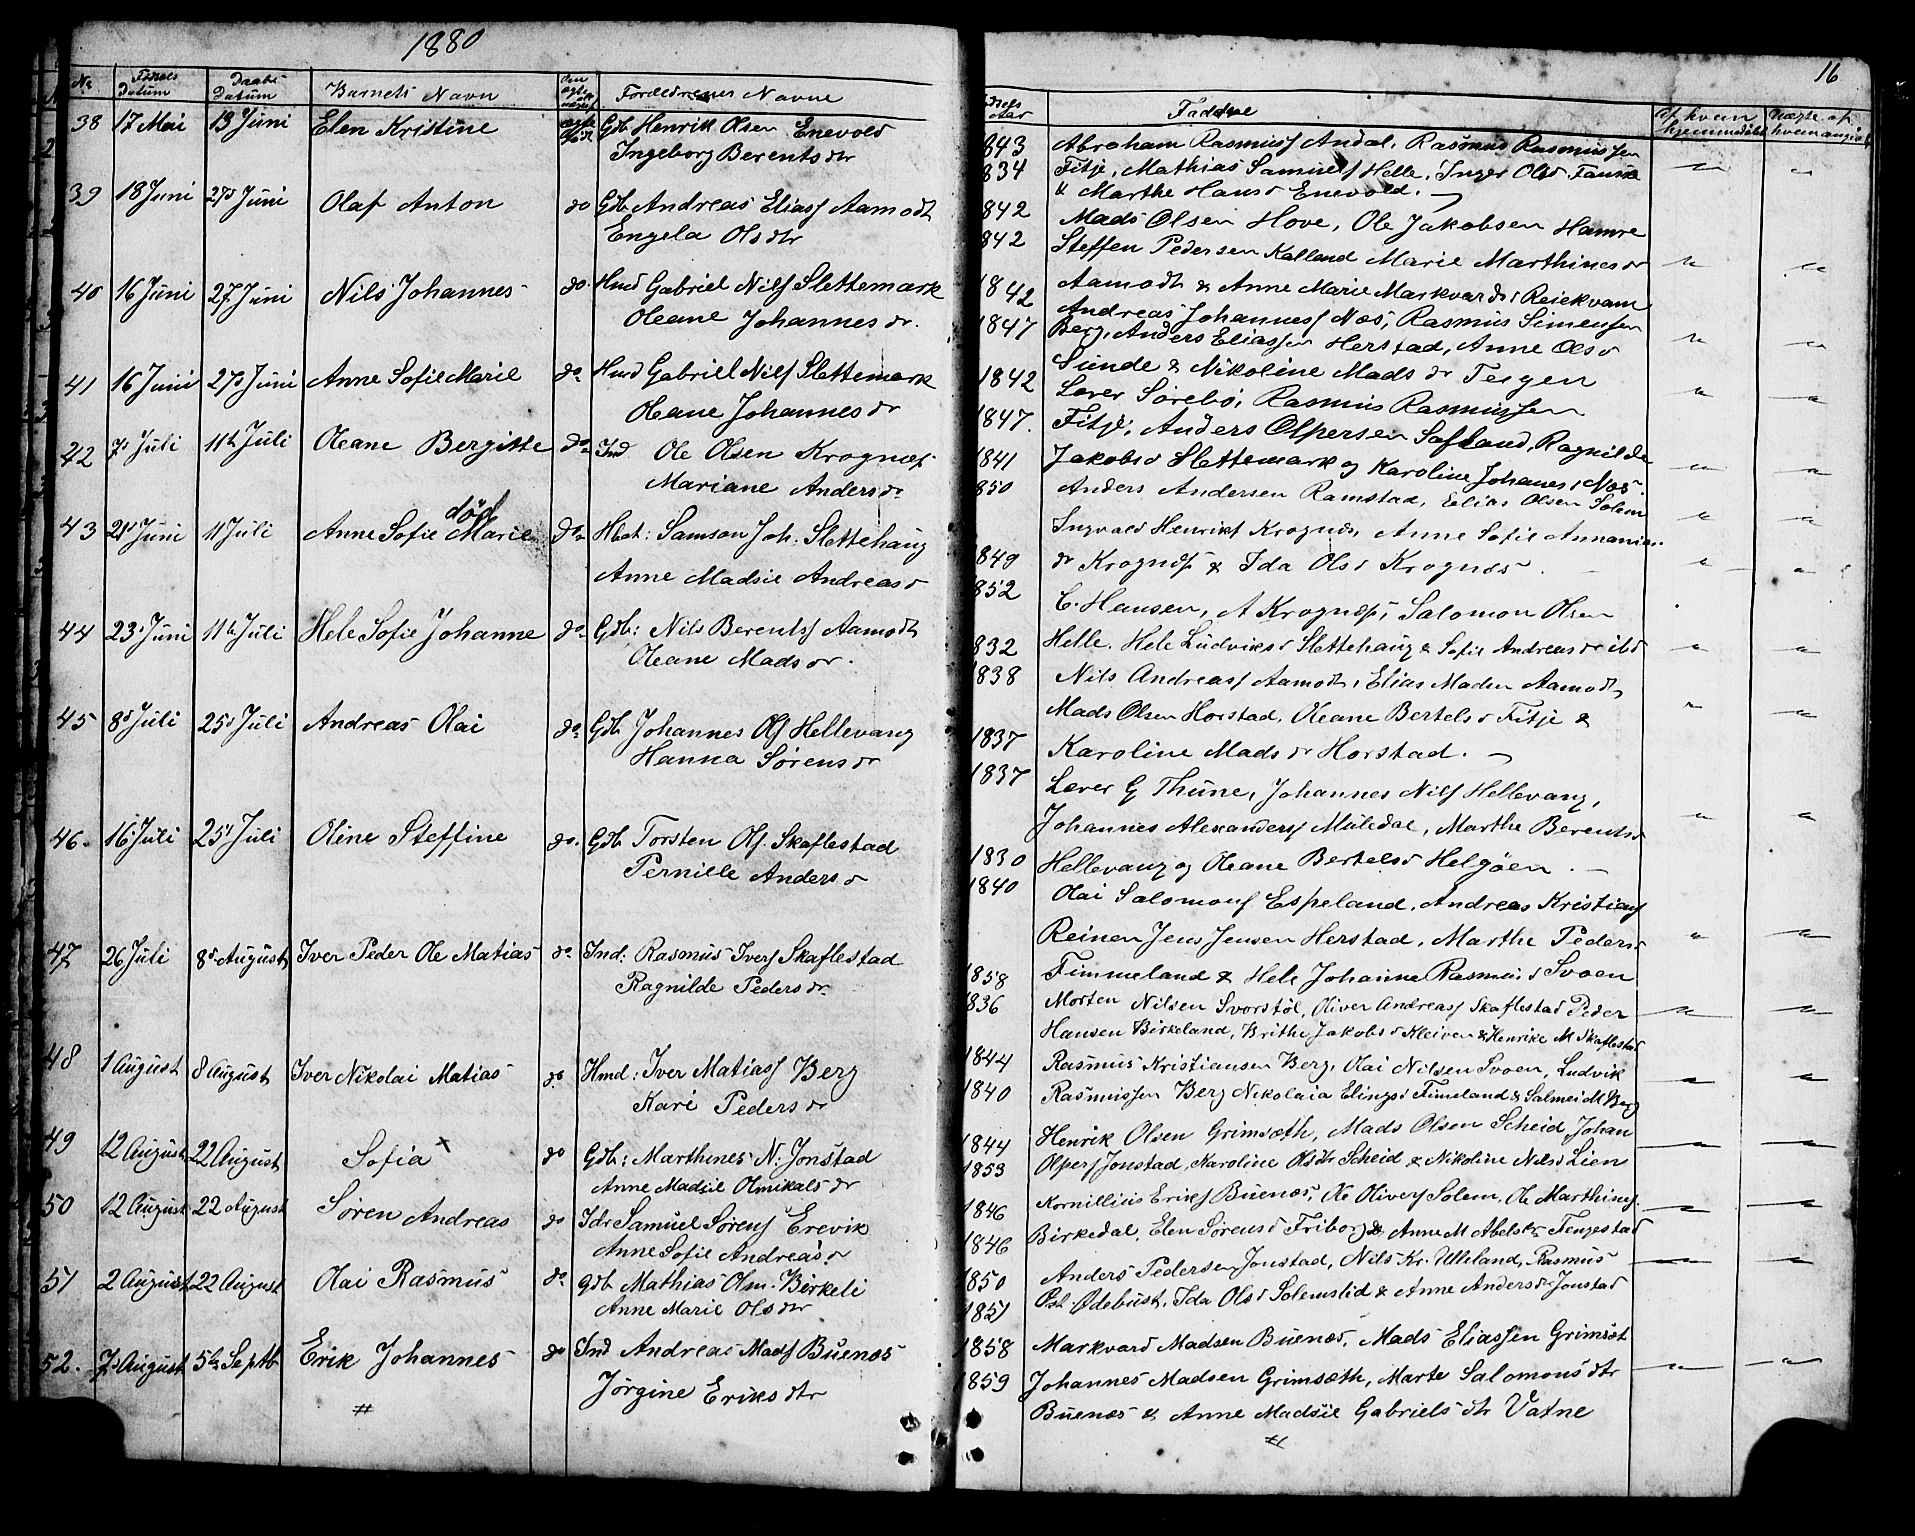 1880
No Fødsels Datum Daabs Datum Barnets Navn Forældrenes Navne
38 17 Mai 13 Juni Elen Kristine Gdb Henrik Olsen Enevold
Ingeborg Berentsdtr
39 18 Juni 27d Juni Olaf Anton do Gdb Andreas Eliass Aamodt
Engela Olsdtr
40 16 Juni 27. Juni Nils Johannes do Hmd Gabriel Nils Slettemark
Oleane Johannesdr.
41 16 Juni 27d Juni Anne Sofie Marie do Hmd Gabriel Nils Slettemark
Oleane Johannesdr
42 7d Juli 11te Juli Oleane Bergitte do Ind Ole Olsen Krognæs
Mariane Andersdr
død
43 21d Juni 11 Juli Anne Sofie Marie do Hbst: Samson Joh. Slettehaug
Anne Madsie Andreasd
44 23d Juni 11te Juli Hele Sofie Johanne do Gdb: Nils Berents Aamodt
Oleane Madsdr.
45 8d Juli 25d Juli Andreas Olai do Gdb Johannes Ols Hellevang
Hanna Sørensdr
46. 16 Juli 25d Juli Oline Steffine do. Gdb Torsten Ols. Skaflestad
Pernille Andersd
47 26 Juli 8d August Iver Peder Ole Matias do Ind: Rasmus Ivers Skaflestad
Ragnilde Pedersdr
48 1 August 8 August Iver Nikolai Matias do Hmd: Iver Matias Berg
Kari Pedersdr
49 12 August 22 August Sofia x do Gdb: Marthines N. Jonstad
Anne Madsie Olmikalsdr
50 12 August 22 August Søren Andreas do Idr Samuel Sørens Erevik
Anne Sofie Andreasd
51 2 August 22 August Olai Rasmus do Gdb Mathias Olm. Birkeli
Anne Marie Olsdtr
52. 7d August 5te Septb Erik Johannes do Ind Andreas Mads Buenæs
Jørgine Eriksdtr
#
16
Aar Faddere Af hvem hjemmedøbt
843 Abraham Rasmuss Andal, Rasmus Rasmussen
834 Fitje, Mathias Samuels Helle, Inger Olsd Fauske
& Marthe Hansd Enevold.
842 Mads Olsen Hove, Ole Jakobsen Hamre
842 Steffen Pedersen Kalland Marie Marthinesdr
1842 Aamodt & Anne Marie Markvardsd Reiekvam
Andreas Johanness Næs, Rasmus Simensen
1847 Berg, Anders Eliassen Herstad, Anne Olsd
Sunde & Nikoline Madsdr Teigen
1842 Lærer Sørebø, Rasmus Rasmussen
1847. Fitje, Anders Olpersen Sofland, Ragnilde
1841 Jakobsd Slettemark og Karoline Johanes. Næs.
850 Anders Andersen Ramstad, Elias Olsen Solem
Ingvald Henriks Krognæs, Anne Sofie Annanias
1849 dr Krognæs & Ida Olsd Krognæs
852
C. Hansen, A Krognæs, Salomon Olsen
832 Helle. Hele Ludviksd Slettehaug & Sofie Andreasdr ibd
1838 Nils Andreas Aamodt, Elias Madsen Aamodt
Mads Olsen Horstad, Oleane Bertelsd Fitje &
1837 Karoline Madsdr Horstad.
1837 Lærer G Thune, Johannes Nils Hellevang,
Johannes Alexanders Muledal, Marthe Berentsd
1830 Hellevang og Oleane Bertelsd Helgøen
1840 Olai Salomons Espeland, Andreas Kristians
Reinen Jens Jensen Herstad, Marthe Pedersd
1858 Timmeland & Hele Johanne Rasmusd Svoen
1836 Morten Nilsen Svorstøl, Oliver Andreas Skaflestad Peder
Hansen Birkeland, Brithe Jakobsd Kleiven & Henrike M Skaflestad
1844 Rasmus Kristiansen Berg, Olai Nilsen Svoen, Ludvik
1840 Rasmussen Berg Nikolaia Elingsd Timeland & Salmei M Berg
1844 Henrik Olsen Grimsæth, Mads Olsen Scheid Johan
1853 Olpers Jonstad, Karoline Olsdtr Scheid & Nikoline Nilsd Lien
1846 Kornillius Eriks Buenæs, Ole Olivers Solem, Ole Marthines
1846 Birkedal, Elen Sørensd Friborg & Anne M Abelsdtr Tengestad
1850 Anders Pedersen Jonstad, Nils Kr. Ulleland, Rasmus
1851 Pst. Ødebust, Ida Olsd Solemslid & Anne Andersdr Jonstad
1858 Markvard Madsen Buenæs, Mads Eliassen Grimsæt
1859 Johannes Madsen Grimsæth, Marte Salomonsdtr
Buenæs & Anne Madsie Gabrielsdtr Vatne
#